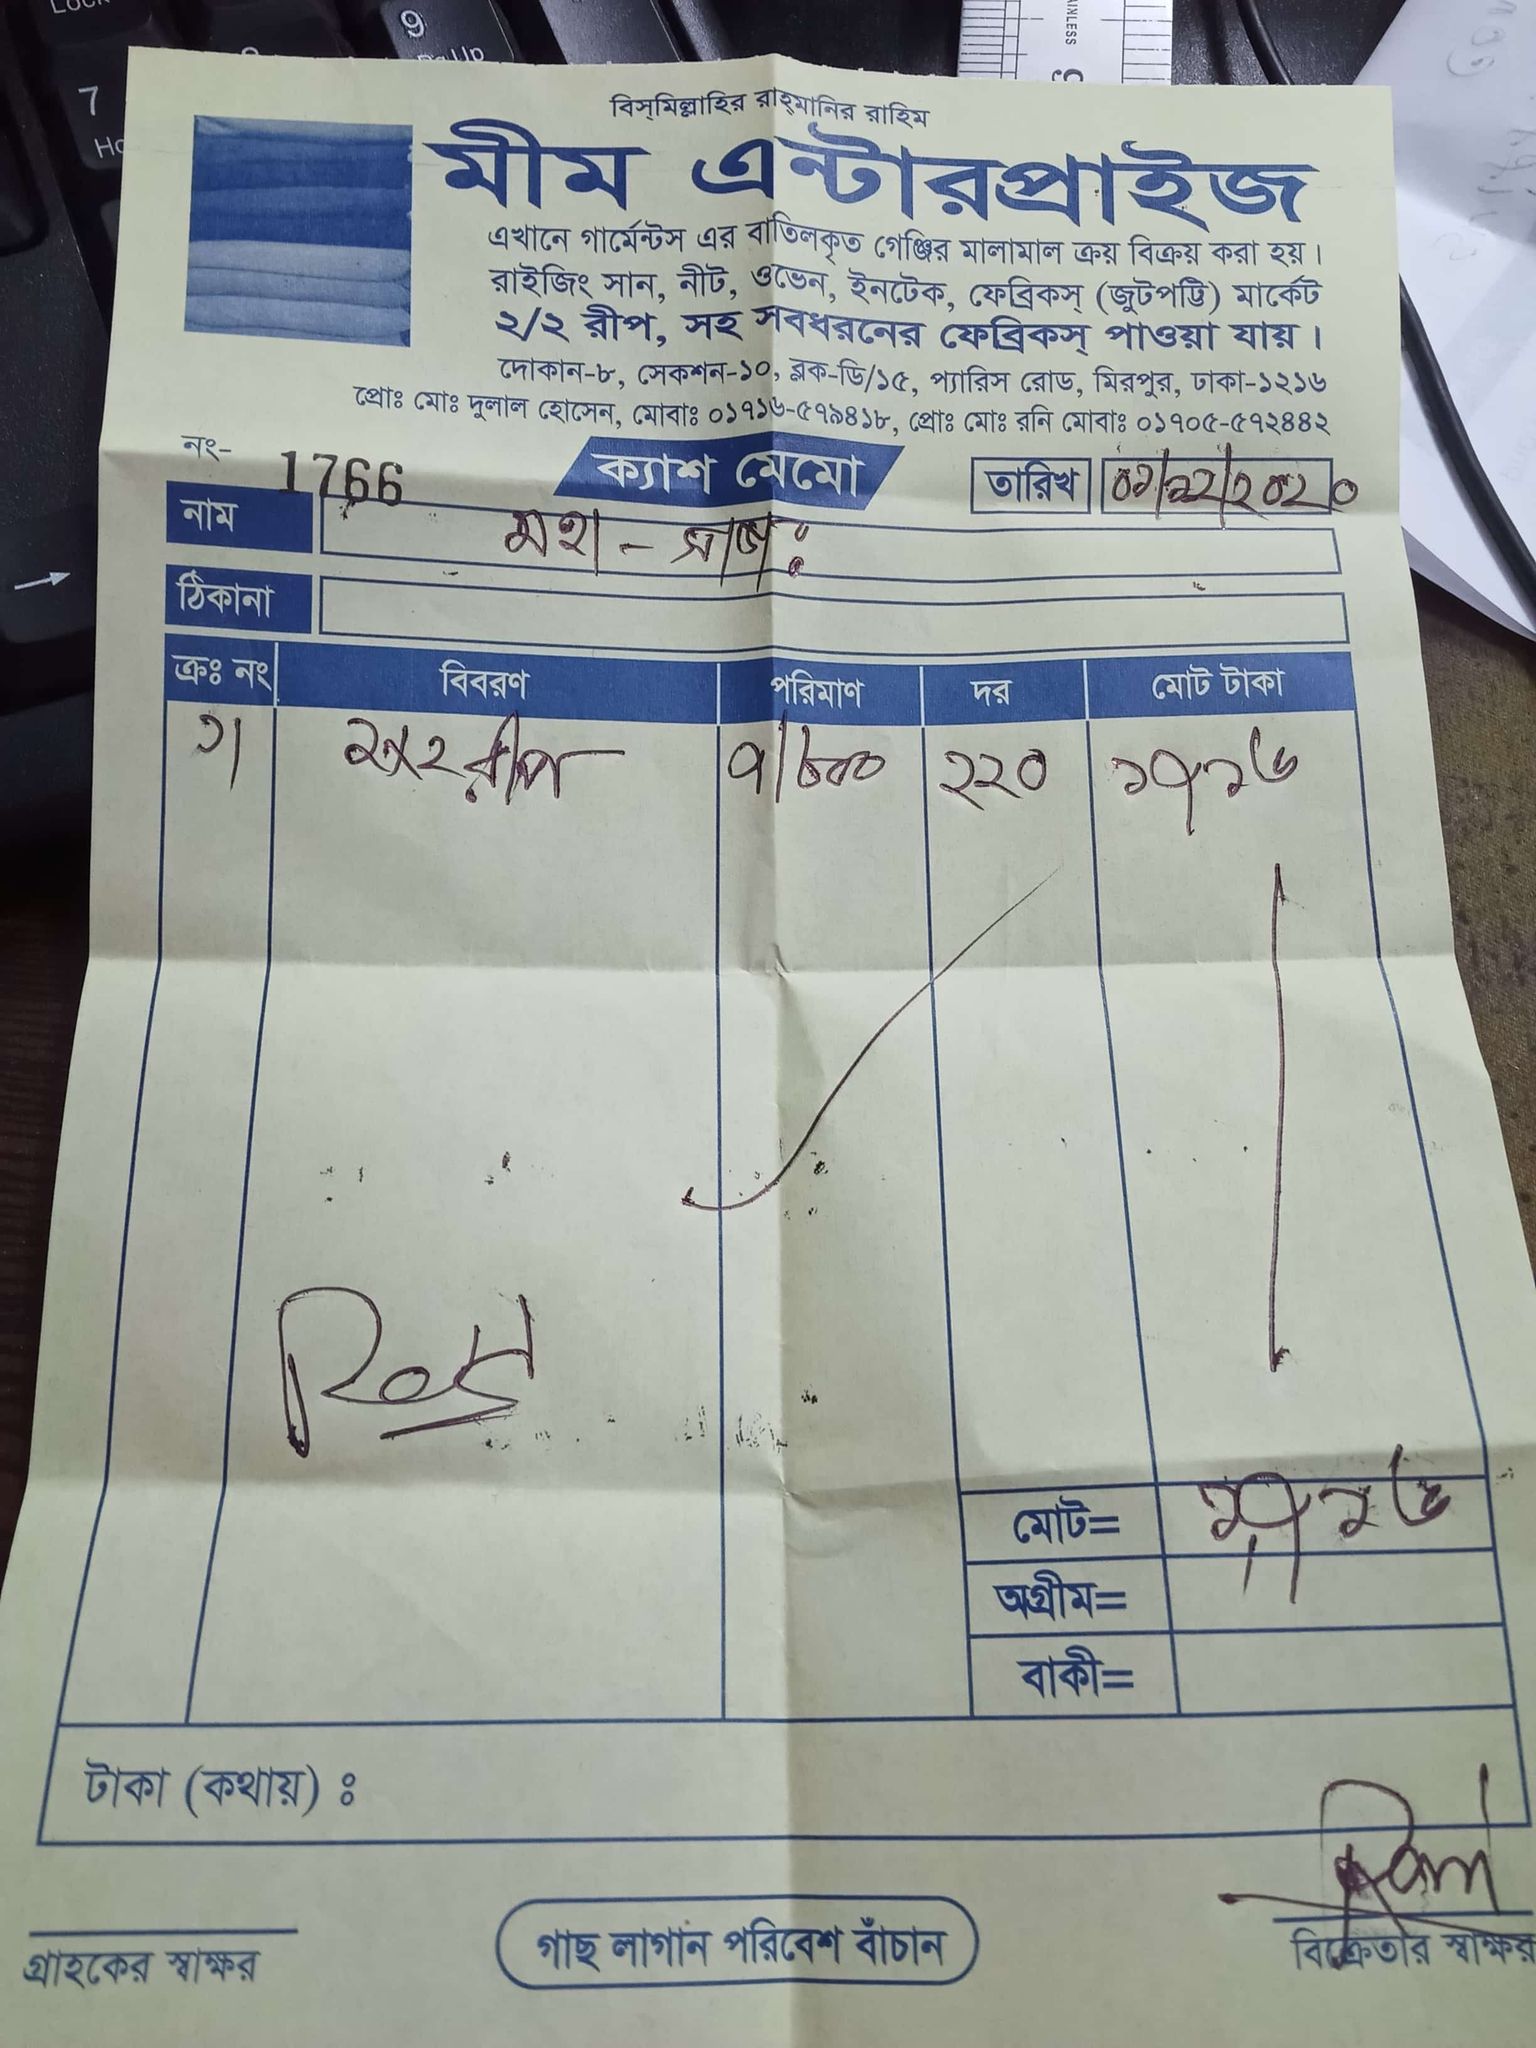 বিস্‌মিল্লাহির রাহ্‌মানির রাহিম
মীম এন্টারপ্রাইজ
এখানে গার্মেন্টস এর বাতিলকৃত গেঞ্জির মালামাল ক্রয় বিক্রয় করা হয়।
রাইজিং সান, নীট, ওভেন, ইনটেক, ফেব্রিকস্ (জুটপট্টি) মার্কেট
২/২ রীপ, সহ সবধরনের ফেব্রিকস্ পাওয়া যায়।
দোকান-৮, সেকশন-১০, ব্লক-ডি/১৫, প্যারিস রোড, মিরপুর, ঢাকা-১২১৬
প্রোঃ মোঃ দুলাল হোসেন, মোবাঃ ০১৭১৬-৫৭৯৪১৮, প্রোঃ মোঃ রনি মোবাঃ ০১৭০৫-৫৭২৪৪২
নং- 1766 ক্যাশ মেমো তারিখ /২০২০
নাম
ঠিকানা
ক্রঃ নং বিবরণ পরিমাণ দর মোট টাকা
১। ২x২ রীপ ৭/৮০০ ২২০ ১৭১৬
মোট= ১৭১৬
অগ্রীম=
বাকী=
টাকা (কথায়) :
গ্রাহকের স্বাক্ষর গাছ লাগান পরিবেশ বাঁচান বিক্রেতার স্বাক্ষর
7
9
PgUp